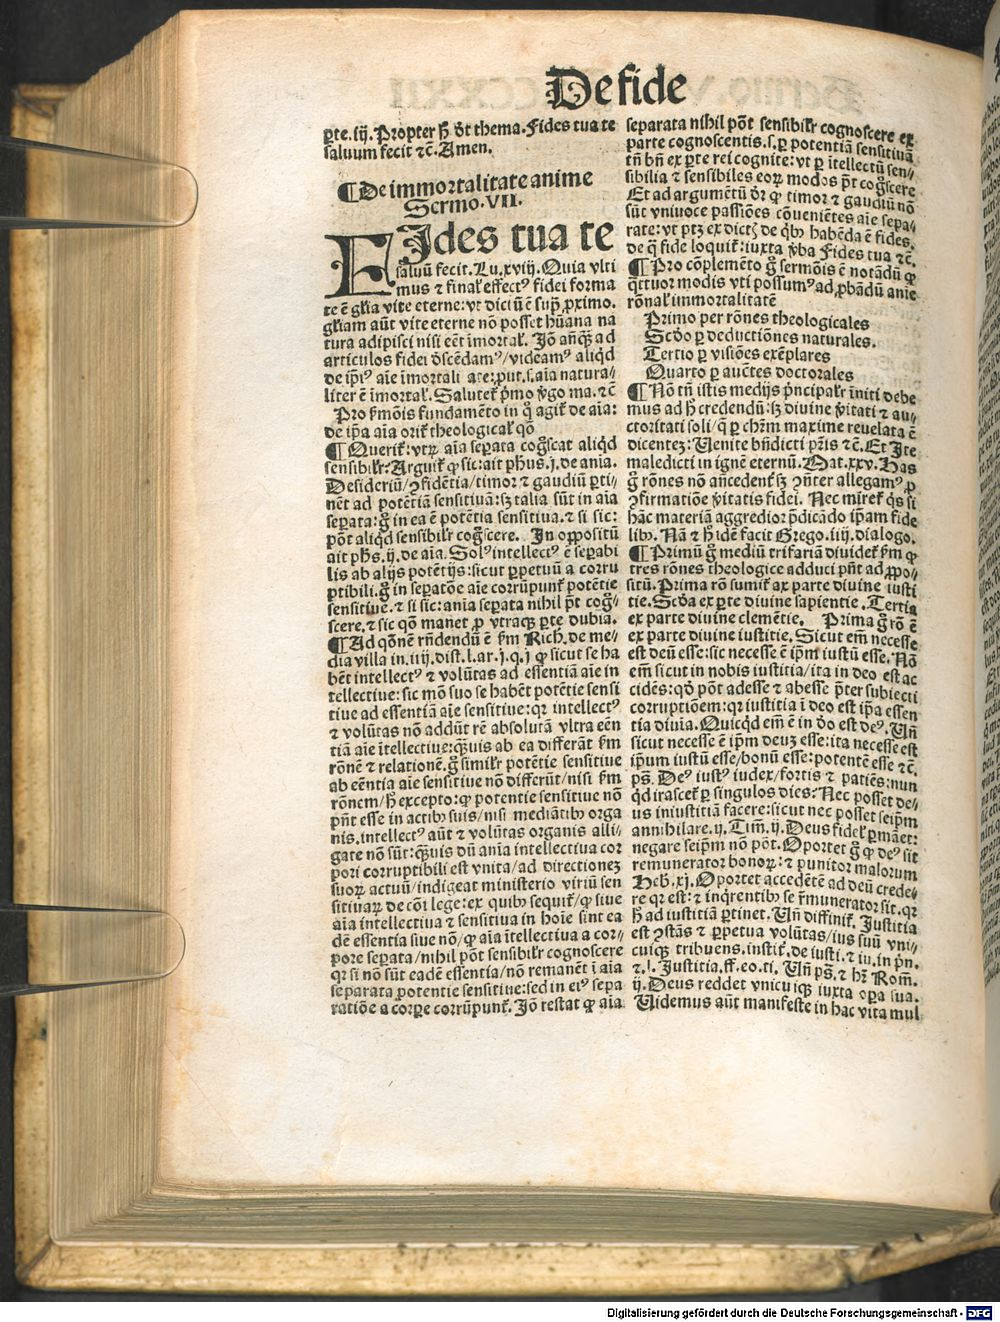 De fide
ꝑte.iij. Propter ħ ðt thema. Fides tua te
saluum fecit ⁊c̄. Amen.
¶ De immortalitate anime
Sermo. VII.
FIdes tua te
saluū fecit. Lu. xviij. Quia vlti
mus ⁊ final' effectꝰ fidei forma
te ē gl'ia vite eterne: vt dictū ē sup̄ ꝓximo.
gl'iam aūt vite eterne nō posset hūana na
tura adipisci nisi eēt īmortal'. Jō anq̄ꝫ ad
articulos fidei ðscēdamꝰ/videamꝰ aliqd
de ip̄iꝰ aīe īmortali ate: ꝓut.s. aīa natura-
liter ē īmortal'. Salutet̄ p̄mo v̓go ma. ⁊c̄
Pro s̓mōis fundamēto in q̊ agit̄ de aīa:
de ip̄a aīa orit̄ theological' qō
¶ Querit̄: vtrꝫ aīa seꝑata cog̊scat aliqd
sensibilr̄: Arguit̄ ꝙ sic: ait ph̓us. j. de anīa.
Desideriū/ꝯfidētia/timor ⁊ gaudiū ꝑti-
nēt ad potētiā sensitiuā: sꝫ talia sūt in aīa
seꝑata: g̊ in ea ē potētia sensitiua. ⁊ si sic:
pōt aliqd sensibilr̄ cog̊scere. In oꝓpositū
ait ph̓s. ij. de aīa. Solꝰ intellectꝰ ē seꝑabi
lis ab alijs potētijs: sicut ꝑpetuū a corru
ptibili. g̊ in seꝑatōe aīe corrūpunt̄ potētie
sensitiue. ⁊ si sic: anīa seꝑata nihil p̄t cog̊-
scere. ⁊ sic qō manet ꝓ vtraqꝫ ꝑte dubia.
¶ Ad qōnē rn̄dendū ē ẜm Rich. de me-
dia villa in. iiij. dist. l. ar. j. q. j ꝙ sicut se ha
bēt intellectꝰ ⁊ volūtas ad essentiā aīe in
tellectiue: sic mō suo se habēt potētie sensi
tiue ad essentiā aīe sensitiue: qꝛ intellectꝰ
⁊ volūtas nō addūt rē absolutā vltra eēn
tiā aīe ītellectiue: qꝫuis ab ea differāt ẜm
rōnē ⁊ relationē. g̊ similr̄ potētie sensitiue
ab eēntia aīe sensitiue nō differūt/nisi ẜm
rōnem/ħ excepto: ꝙ potentie sensitiue nō
pn̄t esse in actibꝰ suis/nisi mediātibꝰ orga
nis. intellectꝰ aūt ⁊ volūtas organis alli-
gate nō sūt: qꝫuis dū anīa intellectiua cor
pori corruptibili est vnita/ad directionez
suoꝝ actuū/indigeat ministerio viriū sen
sitiuaꝝ de cōi lege: ex quibꝰ sequit̄/ꝙ siue
aīa intellectiua ⁊ sensitiua in hoīe sint ea
dē essentia siue nō/ꝙ aīa ītellectiua a cor-
pore seꝑata/nihil pōt sensibilr̄ cognoscere
qꝛ si nō sūt eadē essentia/nō remanēt ī aīa
separata potentie sensitiue: sed in eiꝰ sepa
ratiōe a corꝑe corrūpunt̄. Jō restat ꝙ aīa
separata nihil pōt sensibilr̄ cognoscere ex
parte cognoscentis.s. ꝑ potentiā sensitiuā
tn̄ bn̄ ex ꝑte rei cognite: vt ꝑ ītellectū sen-
sibilia ⁊ sensibiles eoꝝ modos p̄t cog̊scere
Et ad argumētū ðr ꝙ timor ⁊ gaudiū nō
sūt vniuoce passiōes cōueniētes aīe sepa-
rate: vt ptꝫ ex dictꝭ de qͥbꝰ habēda ē fides.
de q̊ fide loquit̄: iuxta v̓ba Fides tua ⁊c̄.
¶ Pro cōplemēto g̊ sermōis ē notādū ꝙ
qͣttuor modis vti possumꝰ ad ꝓbādū anīe
rōnal' immortalitatē
Primo per rōnes theologicales
Scðo ꝑ deductiōnes naturales.
Tertio ꝑ visiōes exēplares
Quarto ꝑ auctēs doctorales
¶ Nō tn̄ istis medijs p̄ncipalr̄ īniti debe
mus ad ħ credendū: sꝫ diuine v̓itati ⁊ au-
ctoritati soli/q̄ ꝑ chr̄m maxime reuelata ē
dicentez: Uenite bn̄dicti pr̄is ⁊c̄. Et Jte
maledicti in ignē eternū. Mat. xxv. Has
g̊ rōnes nō an̄cedent̄ sꝫ ꝯn̄ter allegamꝰ ꝓ
ꝯfirmatiōe v̓itatis fidei. Nec miret̄ qͥs si
hāc materiā aggredior p̄dicādo ip̄am fide
libꝰ. Nā ⁊ ħ idē facit Grego. iiij. dialogo.
¶ Primū g̊ mediū trifariā diuidet̄ ẜm ꝙ
tres rōnes theologice adduci pn̄t ad ꝓpo-
sitū. Prima rō sumit̄ ax parte diuine iusti
tie. Scða ex ꝑte diuine sapientie. Tertia
ex parte diuine clemētie. Prima g̊ rō ē
ex parte diuine iustitie. Sicut em̄ necesse
est deū esse: sic necesse ē ip̄m iustū esse. Nō
em̄ sicut in nobis iustitia/ita in deo est ac
cidēs: qð pōt adesse ⁊ abesse p̄ter subiecti
corruptiōem: qꝛ iustitia ī deo est ip̄a essen
tia diuīa. Quicqd em̄ ē in ðo est deꝰ. Un̄
sicut necesse ē ip̄m deuz esse: ita necesse est
ip̄um iustū esse/bonū esse: potentē esse ⁊c̄.
ps̄. Deꝰ iustꝰ iudex/fortis ⁊ patiēs: nun
qd irascet̄ ꝑ singulos dies: Nec posset de-
us iniustitiā facere: sicut nec posset seip̄m
annihilare. ij. Tim̄. ij. Deus fidel' ꝑmāet:
negare seip̄m nō pōt. Oportet g̊ ꝙ deꝰ sit
remunerator bonoꝝ: ⁊ punitor malorum
Heb̄. xj. Oportet accedētē ad deū crede-
re qꝛ est: ⁊ inqͥrentibꝰ se r̄munerator sit. qꝛ
ħ ad iustitiā ꝑtinet. Un̄ diffinit̄. Justitia
est ꝯstās ⁊ ꝑpetua volūtas/ius suū vni-
cuiqꝫ tribuens. instit̄. de iusti. ⁊ iu. in pn̄.
⁊.l. Justitia. ff. eo. ti. Un̄ ps̄. ⁊ hr̄ Rom̄.
ij. Deus reddet vnicuiqꝫ iuxta oꝑa sua.
Uidemus aūt manifeste in hac vita mul
Digitalisierung gefördert durch die Deutsche Forschungsgemeinschaft - DFG